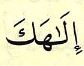 إِلَٰهَكَ